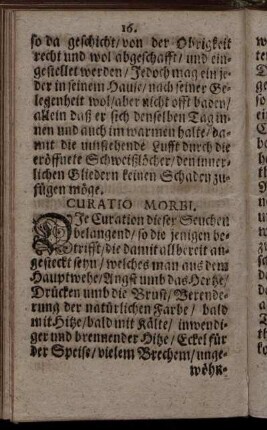 16.
so da geschicht/ von der Obrigkeit
recht und wol abgeschafft/ und ein-
gestellet werden/ Jedoch mag ein je-
der in seinem Hause/ nach seiner Ge-
legenheit wol/ aber nicht offt baden/
allein daß er sich denselben Tag in-
nen und auch im warmen halte/ da-
mit die umstehende Lufft durch die
eröffnete Schweißlöcher/ den inner-
lichen Gliedern keinen Schaden zu-
fügen möge.
CURATIO MORBI.
DIe Curation dieser Seuchen
belangend/ so die jenigen be-
trifft/ die damit allbereit an-
gesteckt seyn/ welches man aus dem
Hauptwehe/ Angst umb das Hertze/
Drücken umb die Brust/ Verende-
rung der natürlichen Farbe/ bald
mit Hitze/ bald mit Kälte/ inwendi-
ger und brennender Hitze/ Eckel für
der Speise/ vielem Brechem/ unge-
wöhn-